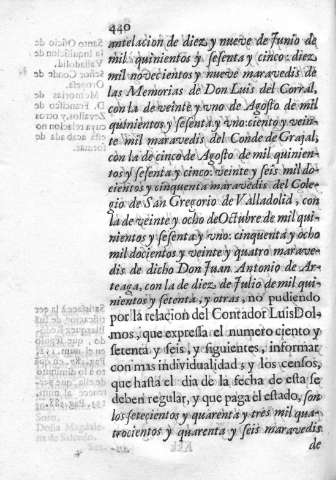 440
antelacion de diez y nueve de Junio de
mil quinientos y sesenta y cinco: diez
mil novecientos y nueve maravedis de
las Memorias de Don Luis del Corral,
con la de veinte y vno de Agosto de mil
quinientos y sesenta y vno: ciento y vein-
te mil maravedis del Conde de Grajal,
con la de cinco de Agosto de mil quinien-
tos y sesenta y cinco: veinte y seis mil do-
cientos y cinquenta maravedis del Cole-
gio de San Gregorio de Valladolid, con
la de veinte y ocho de Octubre de mil qui-
nientos y sesenta y vno: cinquenta y ocho
mil docientos y veinte y quatro marave-
dis de dicho Don Juan Antonio de Ar-
teaga, con la de diez de Julio de mil qui-
nientos y setenta, y otras, no pudiendo
por la relacion del Contador Luis Dol-
mos, que expressa el numero ciento y
setenta y seis, y siguientes, informar
con mas individualidad, y los censos,
que hasta el dia de la fecha de esta se
deben regular, y que paga el estado, son
los setecientos y quarenta y tres mil qua-
trocientos y quarenta y seis maravedis
de